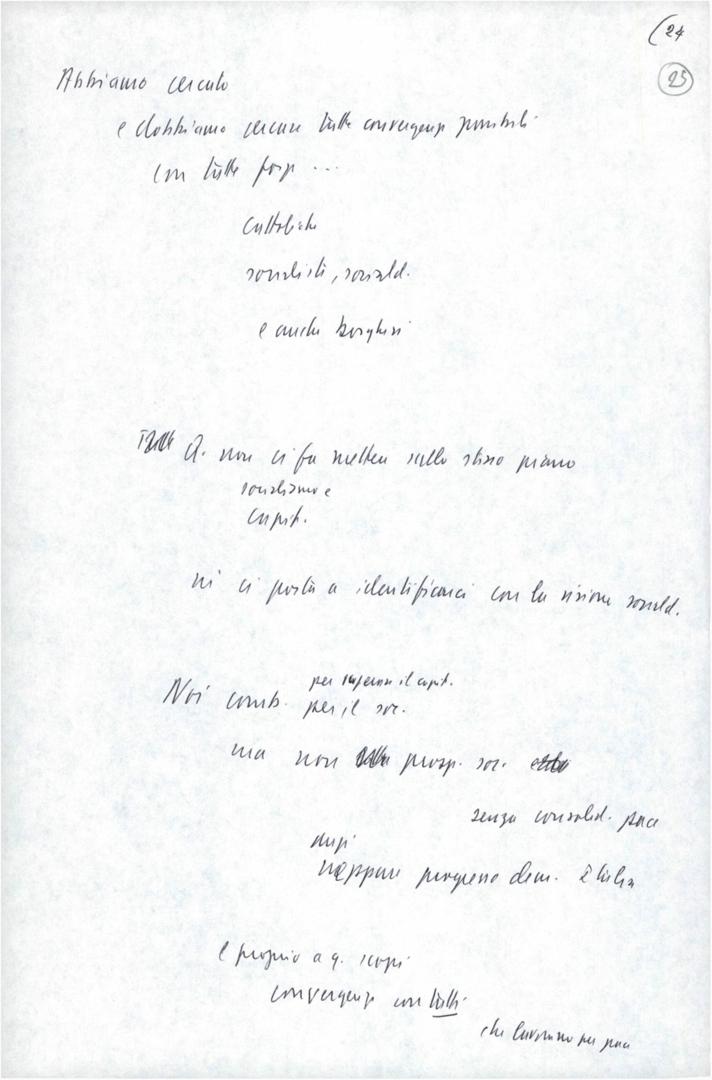 (24
25
Abbiamo cercato
e dobbiamo cercare tutte convergenze possibili
con tutte forze ...
cattoliche
socialisti, sociald.
e anche borghesi
Q. non ci fa mettere sullo stesso piano
socialismo e
capit.
né ci porta a identificarci con la visione sociald.
per superare il capit.
Noi comb. per il soc.
ma non prosp. soc.
senza consolid. pace
anzi
neppure progresso dem. Italia
e proprio a q. scopi
convergenze con tutti
che lavorano per pace